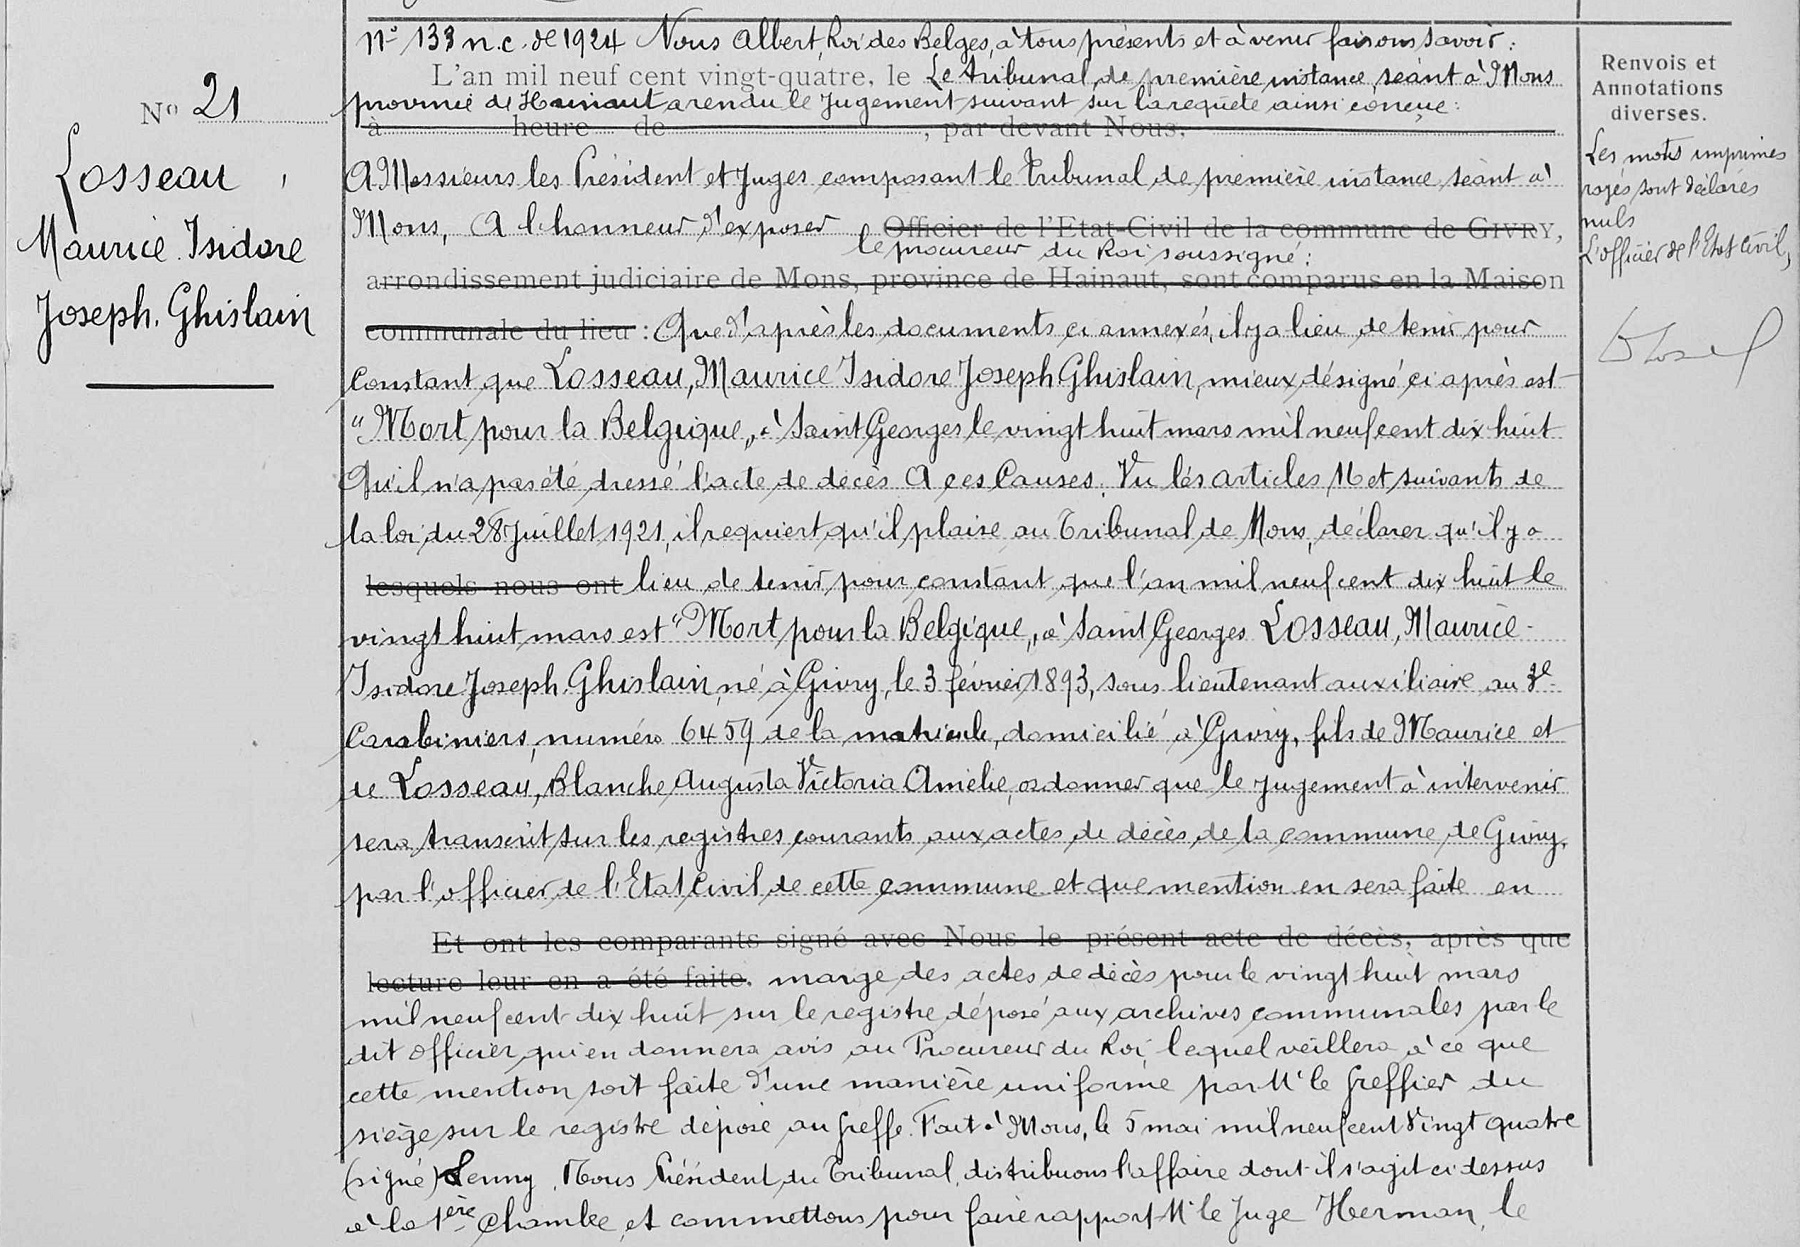 N° 21
Losseau,
Maurice Isidore
Joseph. Ghislain
n° 138 n.c. de 1924 Nous Albert, Roi des Belges, à tous présents et à venir faisons savoir :
L'an mil neuf cent vingt-quatre, le Le tribunal de première instance séant à Mons
province de Hainaut a rendu le Jugement suivant sur la requête ainsi conçue :
à heure de , par devant Nous,
A Messieurs les Président et Juges composant le Tribunal de première instance séant à
Mons, A l'honneur d'exposer Officier de l'Etat-Civil de la commune de GIVRY,
le procureur du Roi soussigné :
arrondissement judiciaire de Mons, province de Hainaut, sont comparus en la Maison
communale du lieu : Que d'après les documents ci annexés, il y a lieu de tenir pour
constant que Losseau, Maurice Isidore Joseph Ghislain, mieux désigné ci après est
"Mort pour la Belgique" à Saint Georges le vingt huit mars mil neuf cent dix huit
Qu'il n'a pas été dressé l'acte de décès A ces Causes. Vu les articles 16 et suivants de
la loi du 28 Juillet 1921, il requiert qu'il plaise au Tribunal de Mons, déclarer qu'il y a
lesquels nous ont lieu de tenir pour constant que l'an mil neuf cent dix huit le
vingt huit mars est "Mort pour la Belgique" à Saint Georges Losseau, Maurice
Isidore Joseph. Ghislain, né à Givry, le 3 février 1893, sous lieutenant auxiliaire au 3e
Carabiniers, numéro 6459 de la matricule, domicilié à Givry, fils de Maurice et
de Losseau, Blanche Augusta Victoria Amélie, ordonner que le jugement à intervenir
sera transcrit sur les registres courants aux actes de décès de la commune de Givry,
par l'officier de l'Etat Civil de cette commune et que mention en sera faite en
Et ont les comparants signé avec Nous le présent acte de décès, après que
lecture leur en a été faite. marge des actes de décès pour le vingt huit mars
mil neuf cent dix huit sur le registre déposé aux archives communales par le
dit officier qui en donnera avis au Procureur du Roi, lequel veillera à ce que
cette mention soit faite d'une manière uniforme par Mr le Greffier du
siège sur le registre déposé au Greffe. Fait à Mons, le 5 mai mil neuf cent Vingt quatre
(signé) Lenny. Nous Président du Tribunal, distribuons l'affaire dont il s'agit ci dessus
à la 1ère Chambre et commettons pour faire rapport Mr le Juge Herman, le
Renvois et
Annotations
diverses.
Les mots imprimés
rayés sont déclarés
nuls
L'officier de l'Etat Civil,